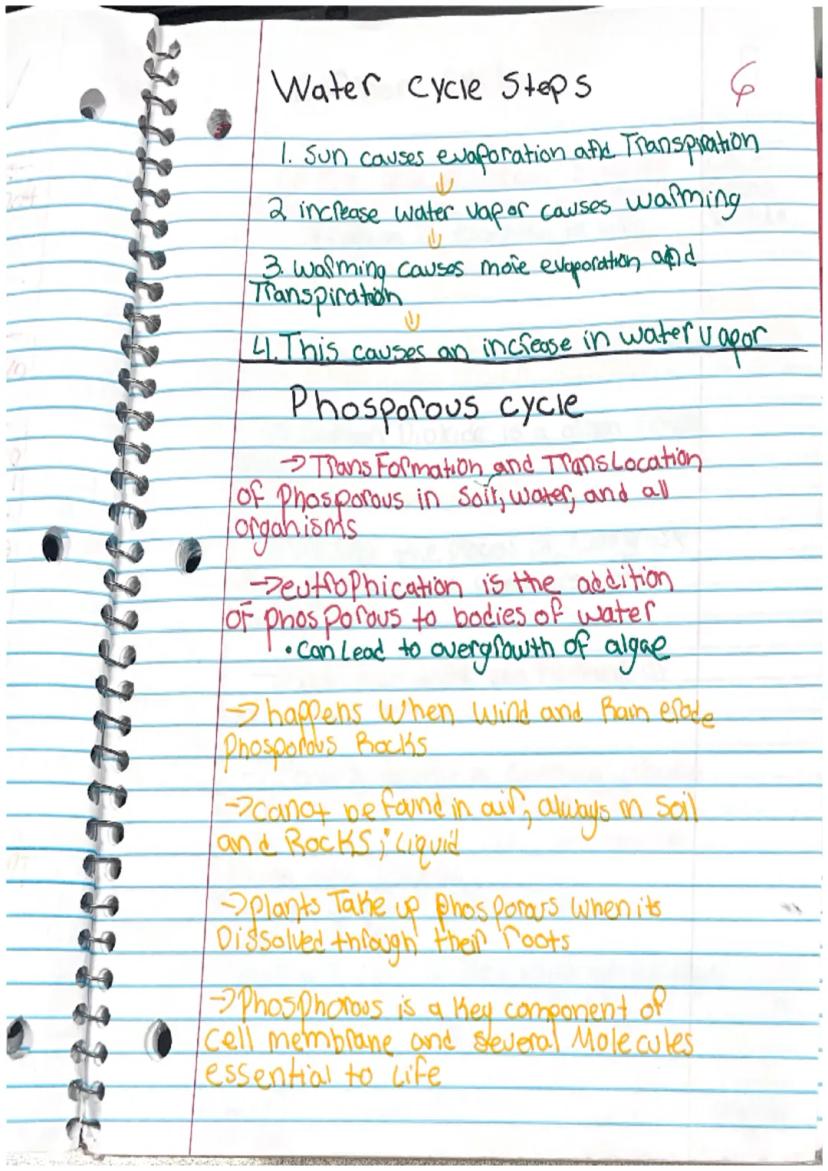 Water cycle Steps
6
1. Sun causes evaporation and Transpiration
2 increase water vapor causes warming
3. warming causes more evaporation and
Transpiration
4. This causes an increase in water vapor
Phosporous cycle
→ TransFormation and TransLocation
of Phosporous in Soil, water, and all
organisms
→ eutrophication is the addition
of phosporous to bodies of water
• can Lead to overgrowth of algae
→ happens When Wind and Rain erode
Phosporous Rocks
→ canot be found in air, always in Soil
and Rocks; Liquid
→ plants Take up phosporous When its
Dissolved through their roots
→ Phosphorous is a key component of
cell membrane and several Molecules
essential to Life